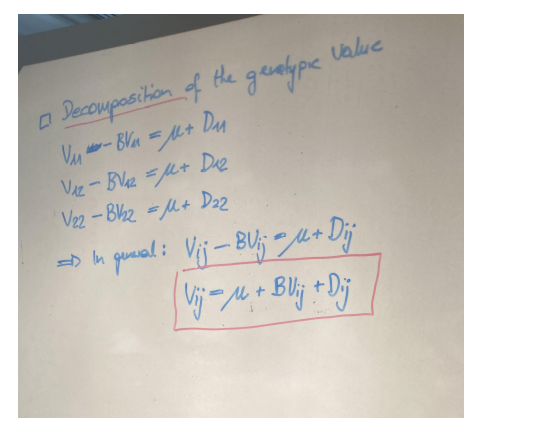 □ Decomposition of the genotypic value
V₁₁ - BV₁₁ = μ + D₁₁
V₁₂ - BV₁₂ = μ + D₁₂
V₂₂ - BV₂₂ = μ + D₂₂
⇒ In general: Vij - BVij = μ + Dij
Vij = μ + BVij + Dij